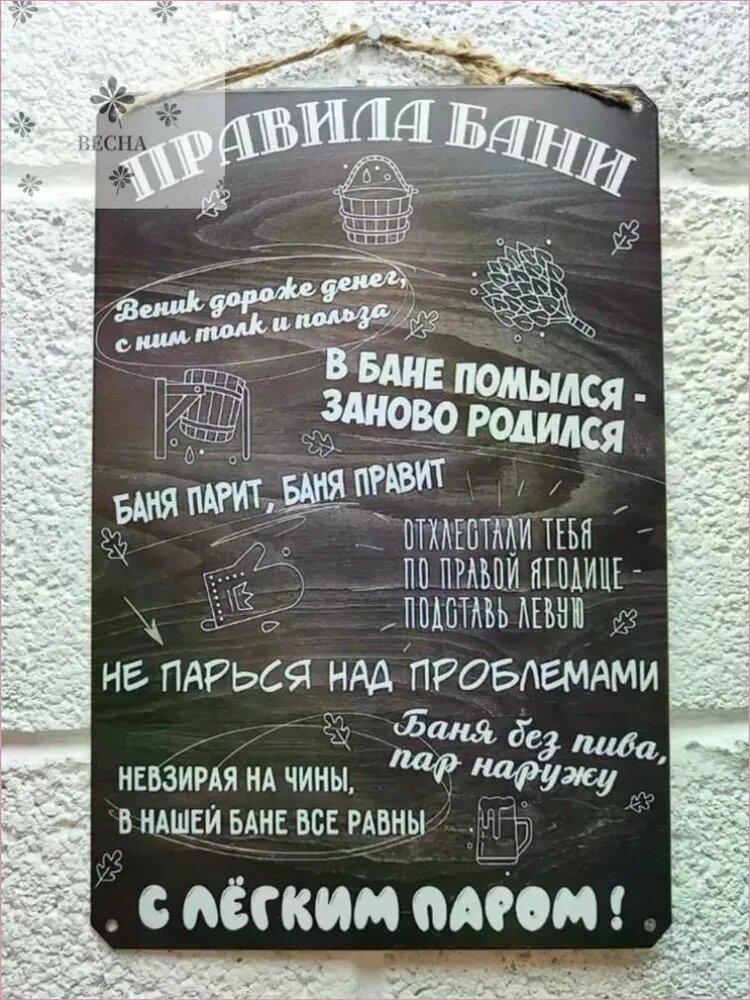 ВЕСНА
ПРАВИЛА БАНИ
Веник дороже денег,
с ним толк и польза
В БАНЕ ПОМЫЛСЯ -
ЗАНОВО РОДИЛСЯ
БАНЯ ПАРИТ, БАНЯ ПРАВИТ
ОТХЛЕСТАЛИ ТЕБЯ
ПО ПРАВОЙ ЯГОДИЦЕ -
ПОДСТАВЬ ЛЕВУЮ
НЕ ПАРЬСЯ НАД ПРОБЛЕМАМИ
Баня без пива,
пар наружу
НЕВЗИРАЯ НА ЧИНЫ,
В НАШЕЙ БАНЕ ВСЕ РАВНЫ
С ЛЁГКИМ ПАРОМ!